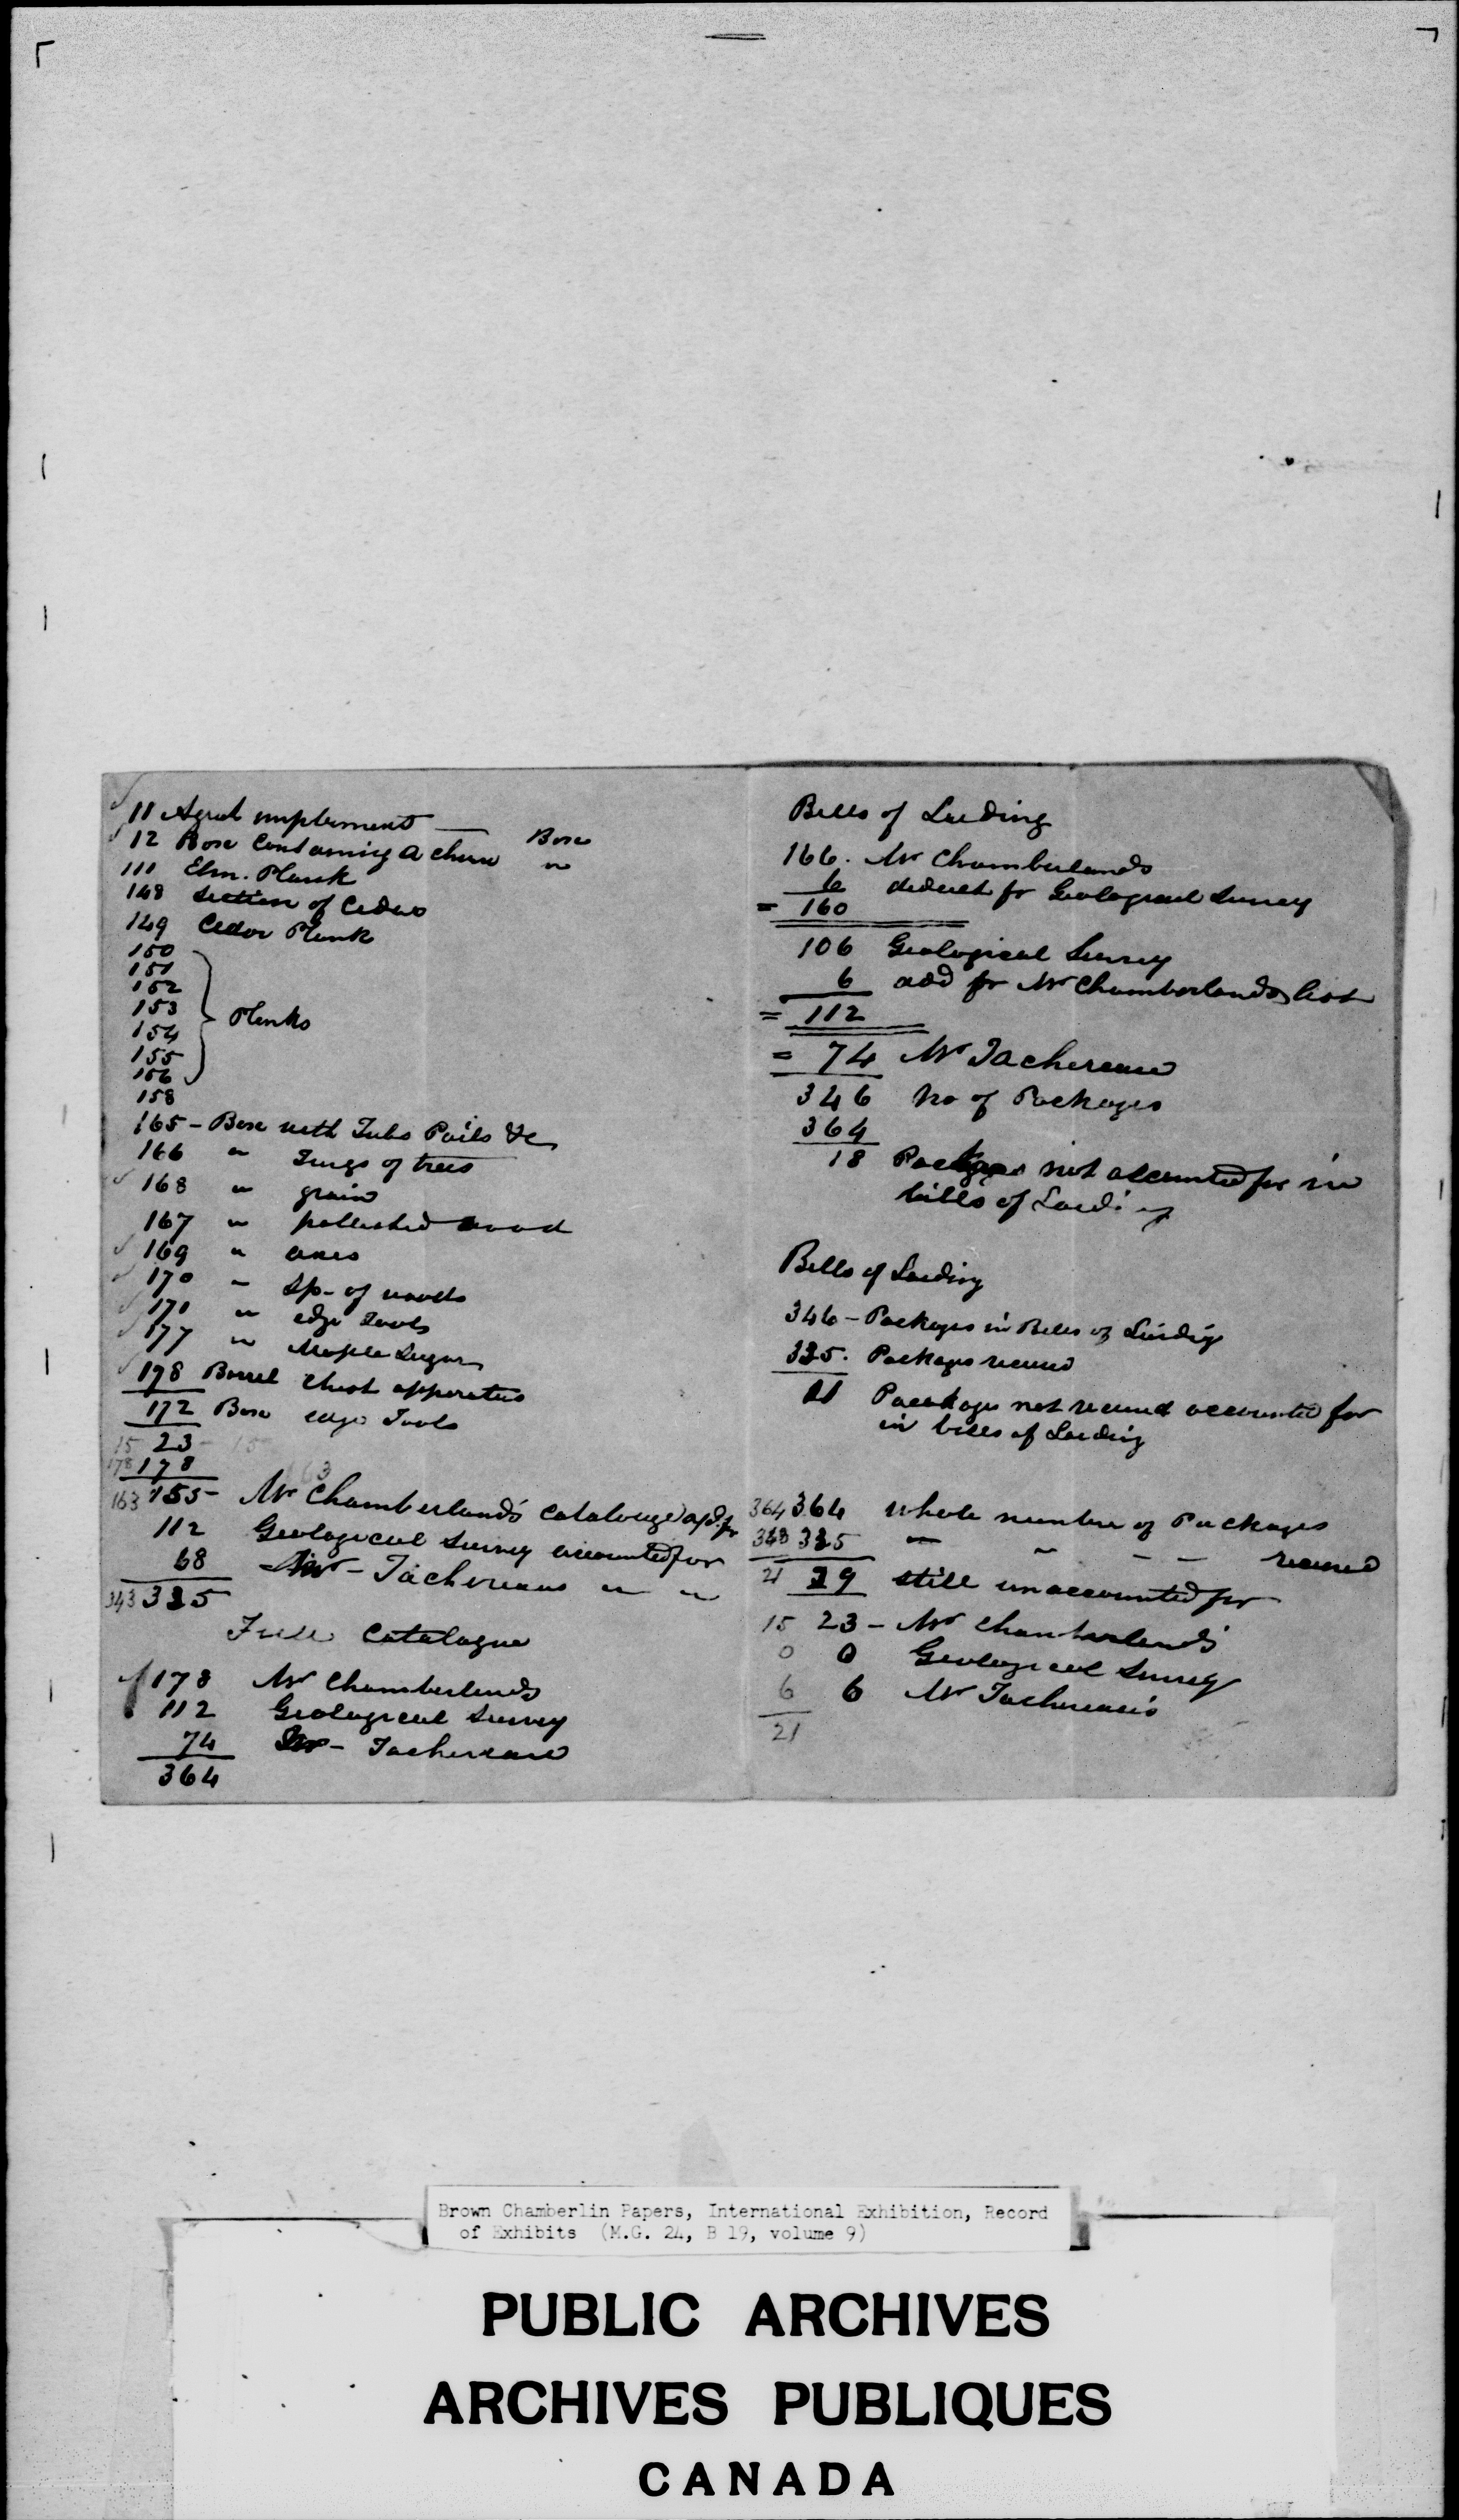 ✓ 11 Agrul implement — Box
✓ 12 Box Containing a churn "
111 Elm. Plank
148 Section of Cedar
149 Cedar Plank
150
151
152
153 } Planks
154
155
156
158
165 - Box with Tubs Pails &c
166 " Fungs of trees
✓ 168 " grain
167 " pollished wood
✓ 169 " axes
✓ 170 " Sp. of woods
✓ 171 " edge Tools
✓ 177 " Maple Sugar
✓ 178 Barrel Chest apparatus
172 Box edge Tools
15 23 - 15
178 178
163 155 - Mr Chamberland's Catalouge a/d for
112 Geological Survey accounted for
68 Mr - Tachereaus " "
343 335
Full Catalogue
✓ 178 Mr Chamberlands
112 Geological Survey
74 Mr - Tachereau
364
Bills of Lading
166. Mr Chamberlands
6 deduct for Geological Survey
= 160
106 Geological Survey
6 add for Mr Chamberlands list
= 112
= 74 Mr Tachereau
346 No of Packages
364
18 Packages not accounted for in
bills of Lading
Bills of Lading
346 - Packages in Bills of Lading
335. Packages received
11 Packages not received accounted for
in bills of Lading
364 364 whole number of Packages
343 335 " " " " received
21 29 still unaccounted for
15 23 - Mr Chamberlands
0 0 Geological Survey
6 6 Mr Tachereau's
21
Brown Chamberlin Papers, International Exhibition, Record
of Exhibits (M.G. 24, B 19, volume 9)
PUBLIC ARCHIVES
ARCHIVES PUBLIQUES
CANADA